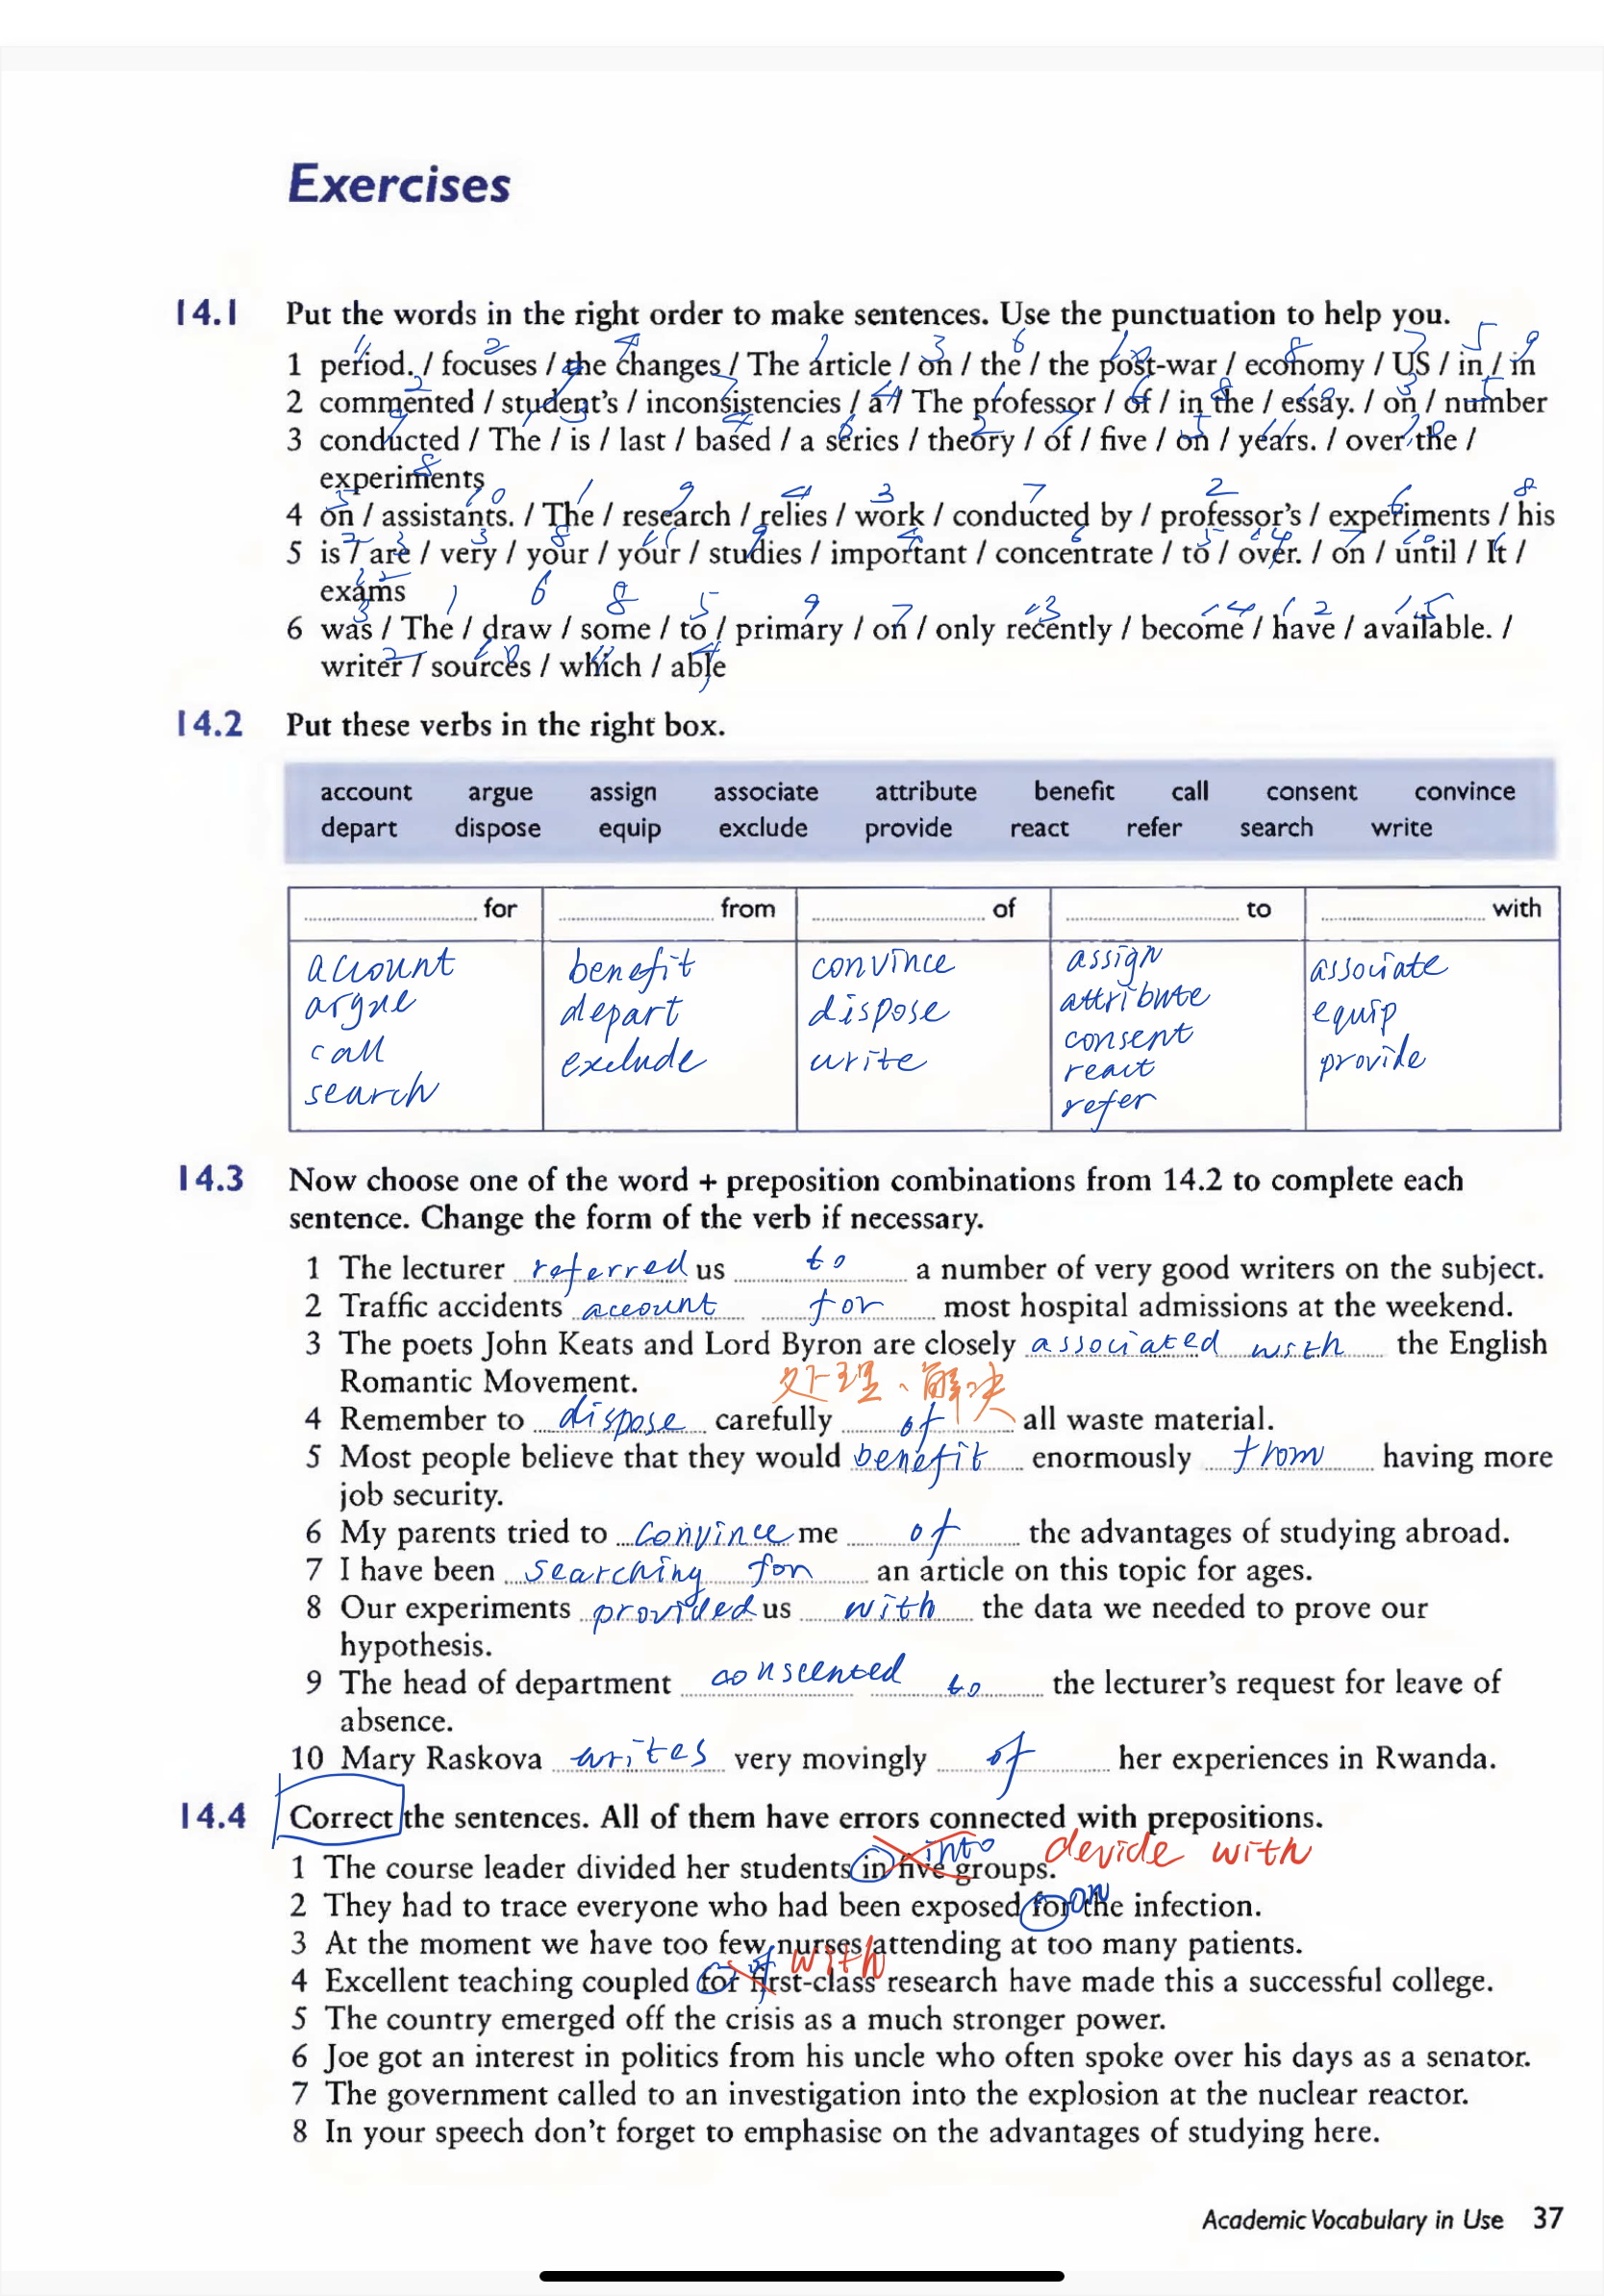 Exercises
14.1 Put the words in the right order to make sentences. Use the punctuation to help you.
11 2 4 1 3 6 10 8 7 5 9
1 period. / focuses / the changes / The article / on / the / the post-war / economy / US / in / in
2 9 7 4 1 6 8 10 3 5
2 commented / student's / inconsistencies / a / The professor / of / in the / essay. / on / number
9 1 3 4 6 2 7 5 11 10
3 conducted / The / is / last / based / a series / theory / of / five / on / years. / over the /
8
experiments
5 10 1 9 4 3 7 2 6 8
4 on / assistants. / The / research / relies / work / conducted by / professor's / experiments / his
2 3 8 11 9 4 6 5 14 7 10 1
5 is / are / very / your / your / studies / important / concentrate / to / over. / on / until / It /
12
exams
3 1 6 8 5 9 7 13 14 12 15
6 was / The / draw / some / to / primary / on / only recently / become / have / available. /
2 10 11 4
writer / sources / which / able
14.2 Put these verbs in the right box.
account argue assign associate attribute benefit call consent convince
depart dispose equip exclude provide react refer search write
for from of to with
account benefit convince assign associate
argue depart dispose attribute equip
call exclude write consent provide
search react
refer
14.3 Now choose one of the word + preposition combinations from 14.2 to complete each
sentence. Change the form of the verb if necessary.
1 The lecturer referred us to a number of very good writers on the subject.
2 Traffic accidents account for most hospital admissions at the weekend.
3 The poets John Keats and Lord Byron are closely associated with the English
Romantic Movement. 处理、解决
4 Remember to dispose carefully of all waste material.
5 Most people believe that they would benefit enormously from having more
job security.
6 My parents tried to convince me of the advantages of studying abroad.
7 I have been searching for an article on this topic for ages.
8 Our experiments provided us with the data we needed to prove our
hypothesis.
9 The head of department conscented to the lecturer's request for leave of
absence.
10 Mary Raskova writes very movingly of her experiences in Rwanda.
14.4 Correct the sentences. All of them have errors connected with prepositions.
into devide with
1 The course leader divided her students in five groups.
2 They had to trace everyone who had been exposed for on the infection.
3 At the moment we have too few nurses attending at too many patients.
of with
4 Excellent teaching coupled for first-class research have made this a successful college.
5 The country emerged off the crisis as a much stronger power.
6 Joe got an interest in politics from his uncle who often spoke over his days as a senator.
7 The government called to an investigation into the explosion at the nuclear reactor.
8 In your speech don't forget to emphasise on the advantages of studying here.
Academic Vocabulary in Use 37